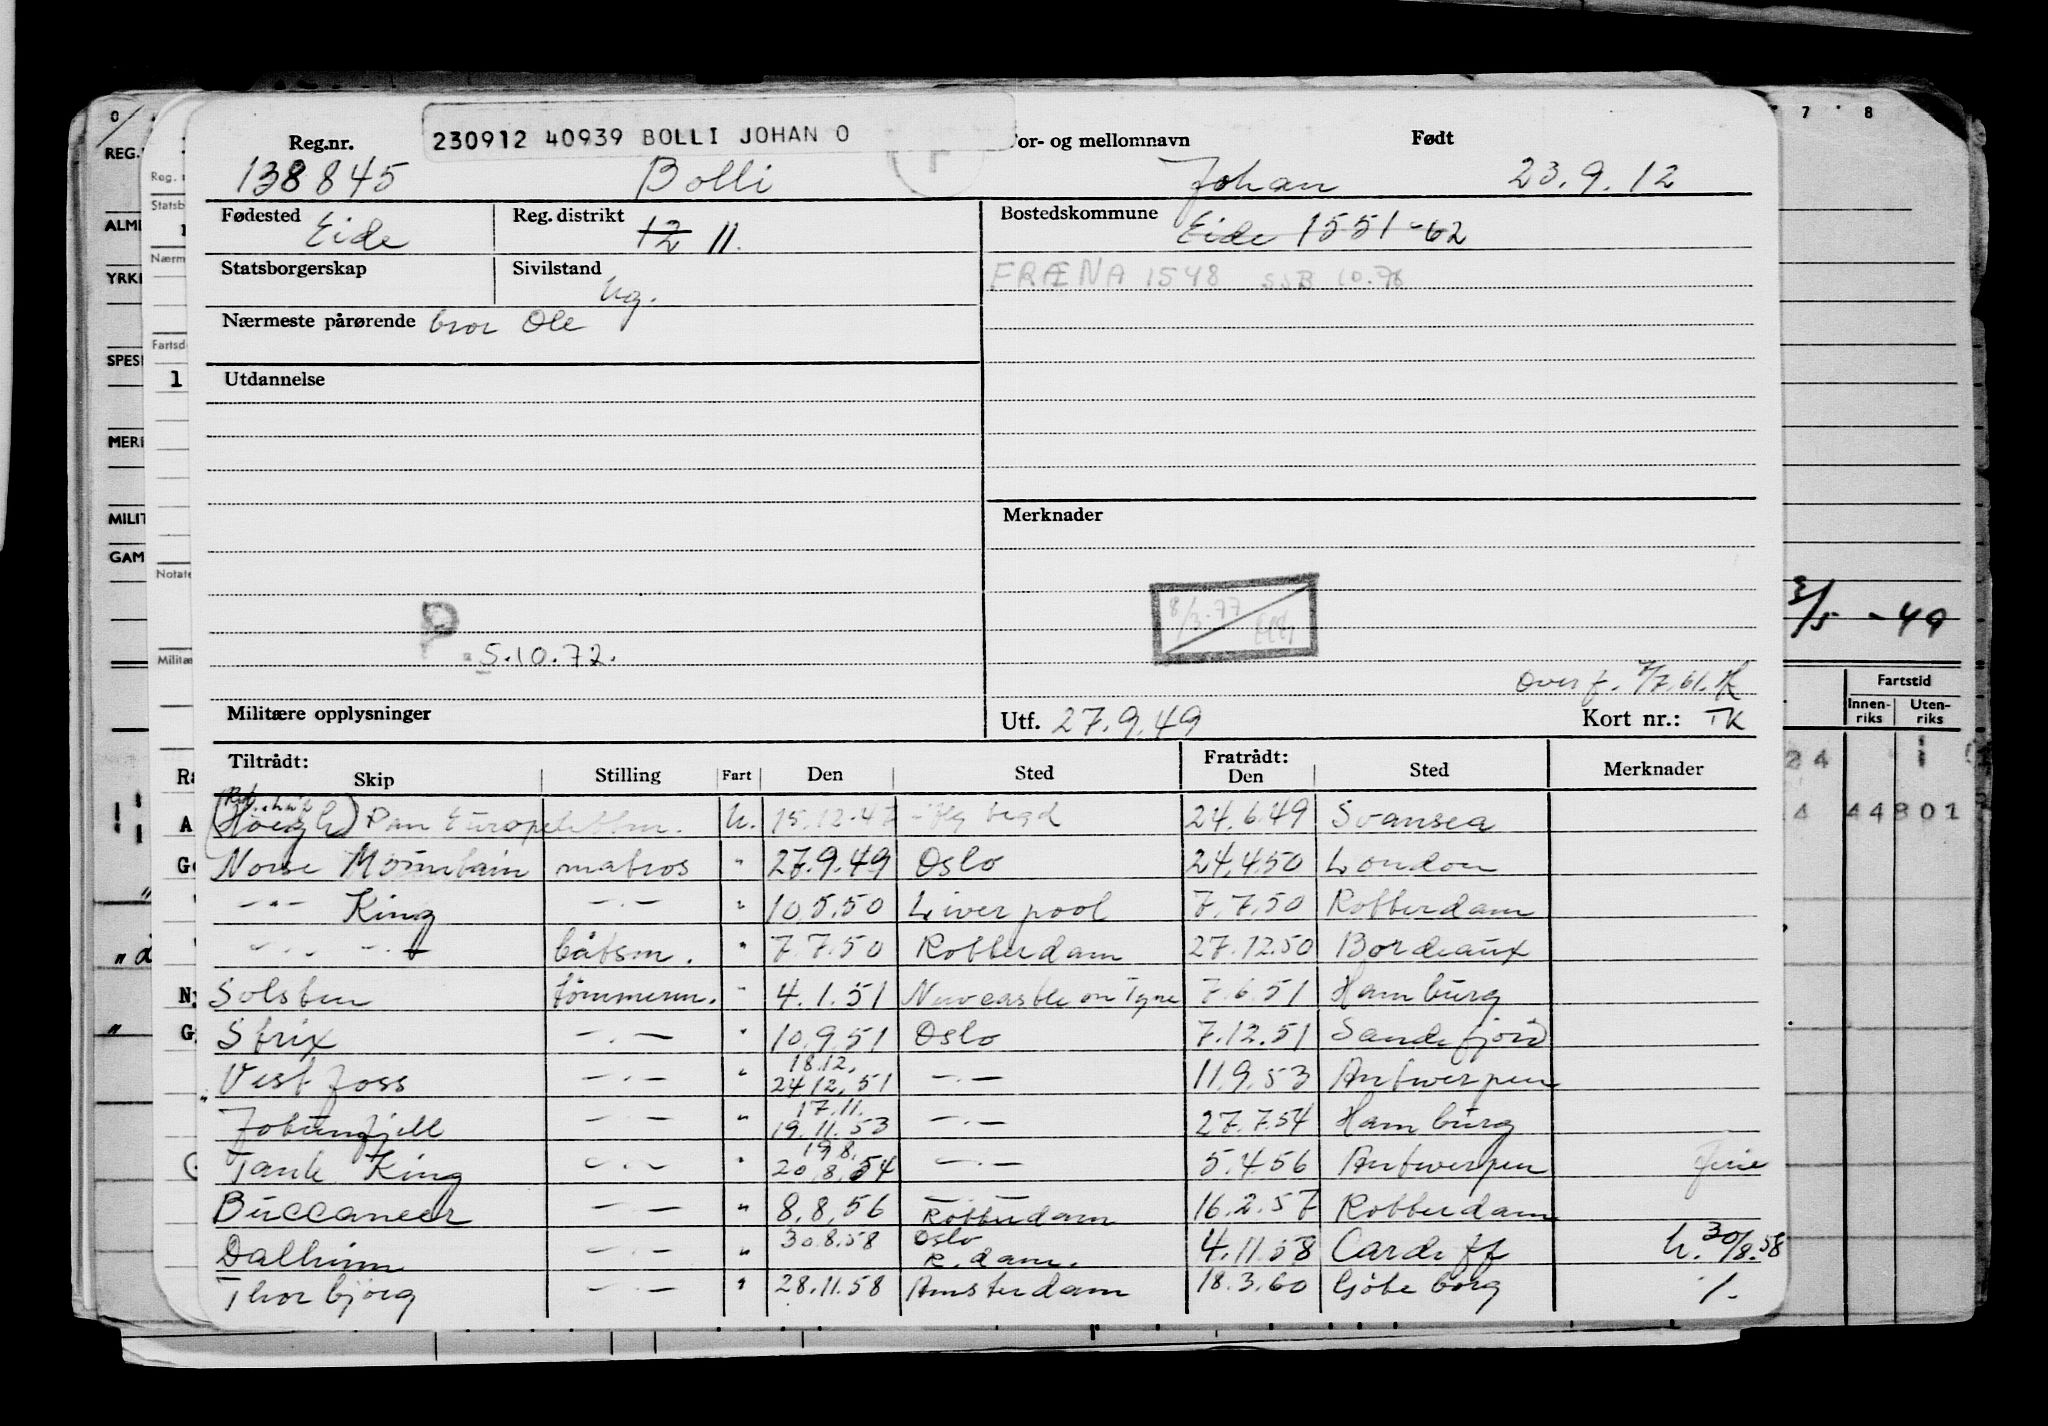 230912 40939 BOLLI JOHAN O
Reg.nr. For- og mellomnavn Født
138845 Bolli Johan 23.9.12
Fødested Eide Reg. distrikt 12 11. Bostedskommune Eide 1551-62
Statsborgerskap Sivilstand Ug. FRÆNA 1548 SSB 10.76
Nærmeste pårørende bror Ole
Utdannelse
Merknader
8/3.77
P. 5.10.72.
Overf. 7/7.61.
Militære opplysninger Utf. 27.9.49 Kort nr.: TK
Tiltrådt: Fratrådt:
Skip Stilling Fart Den Sted Den Sted Merknader
(Høegh) Pan Europe U. 15.12.47 24.6.49 Svansea
Norse Mountain matros " 27.9.49 Oslo 24.4.50 London
-"- King -"- " 10.5.50 Liverpool 7.7.50 Rotterdam
-"- -"- båtsm. " 7.7.50 Rotterdam 27.12.50 Bordeaux
Solsten tömmerm. " 4.1.51 Newcastle on Tyne 7.6.51 Hamburg
Strix -"- " 10.9.51 Oslo 7.12.51 Sandefjord
Vestfoss -"- " 18.12. 24.12.51 -"- 11.9.53 Antwerpen
Jotunfjell -"- " 17.11. 19.11.53 -"- 27.7.54 Hamburg
Tank King -"- " 19.8. 20.8.54 -"- 5.4.56 Antwerpen ferie
Buccaneer -"- " 8.8.56 Rotterdam 16.2.57 Rotterdam
Dalheim -"- " 30.8.58 Oslo R.dam. 4.11.58 Cardiff h. 30/8.58
Thorbjörg -"- " 28.11.58 Amsterdam 18.3.60 Göteborg
0 7 8
REG.
ALM
YRK
SPES
MER
MILIT
GAM
Reg.
Statsb
Nærm
Fartsd
1
Notate
Militæ
3/5 -49
Fartstid
Innen-riks Uten-riks
24 1
4 44801